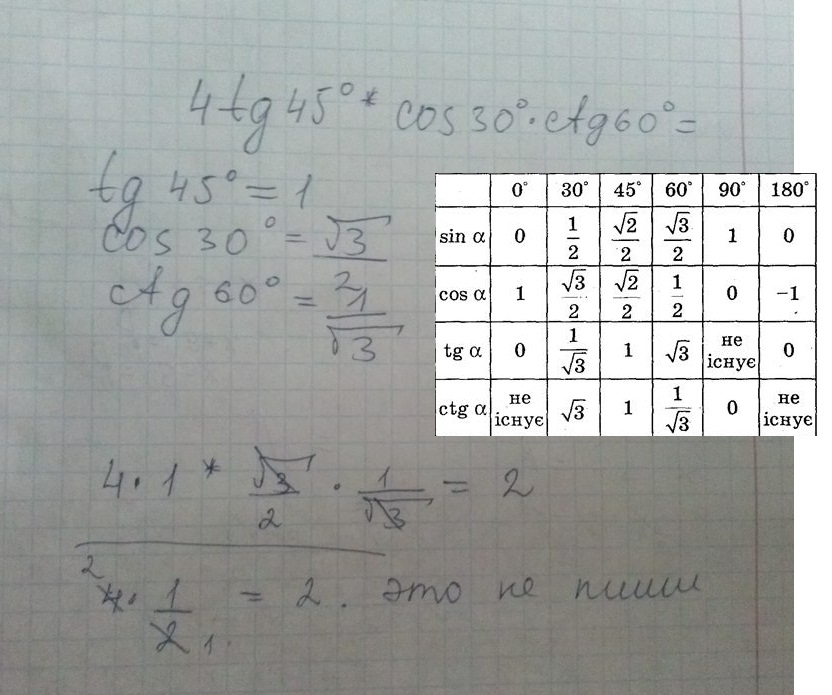 4 tg 45° * cos 30° · ctg 60° =
tg 45° = 1
cos 30° = √3/2
ctg 60° = 1/√3
0° 30° 45° 60° 90° 180°
sin α 0 1/2 √2/2 √3/2 1 0
cos α 1 √3/2 √2/2 1/2 0 −1
tg α 0 1/√3 1 √3 не існує 0
ctg α не існує √3 1 1/√3 0 не існує
4 · 1 * √3/2 · 1/√3 = 2
2 4 · 1/2 1 = 2. это не пиши